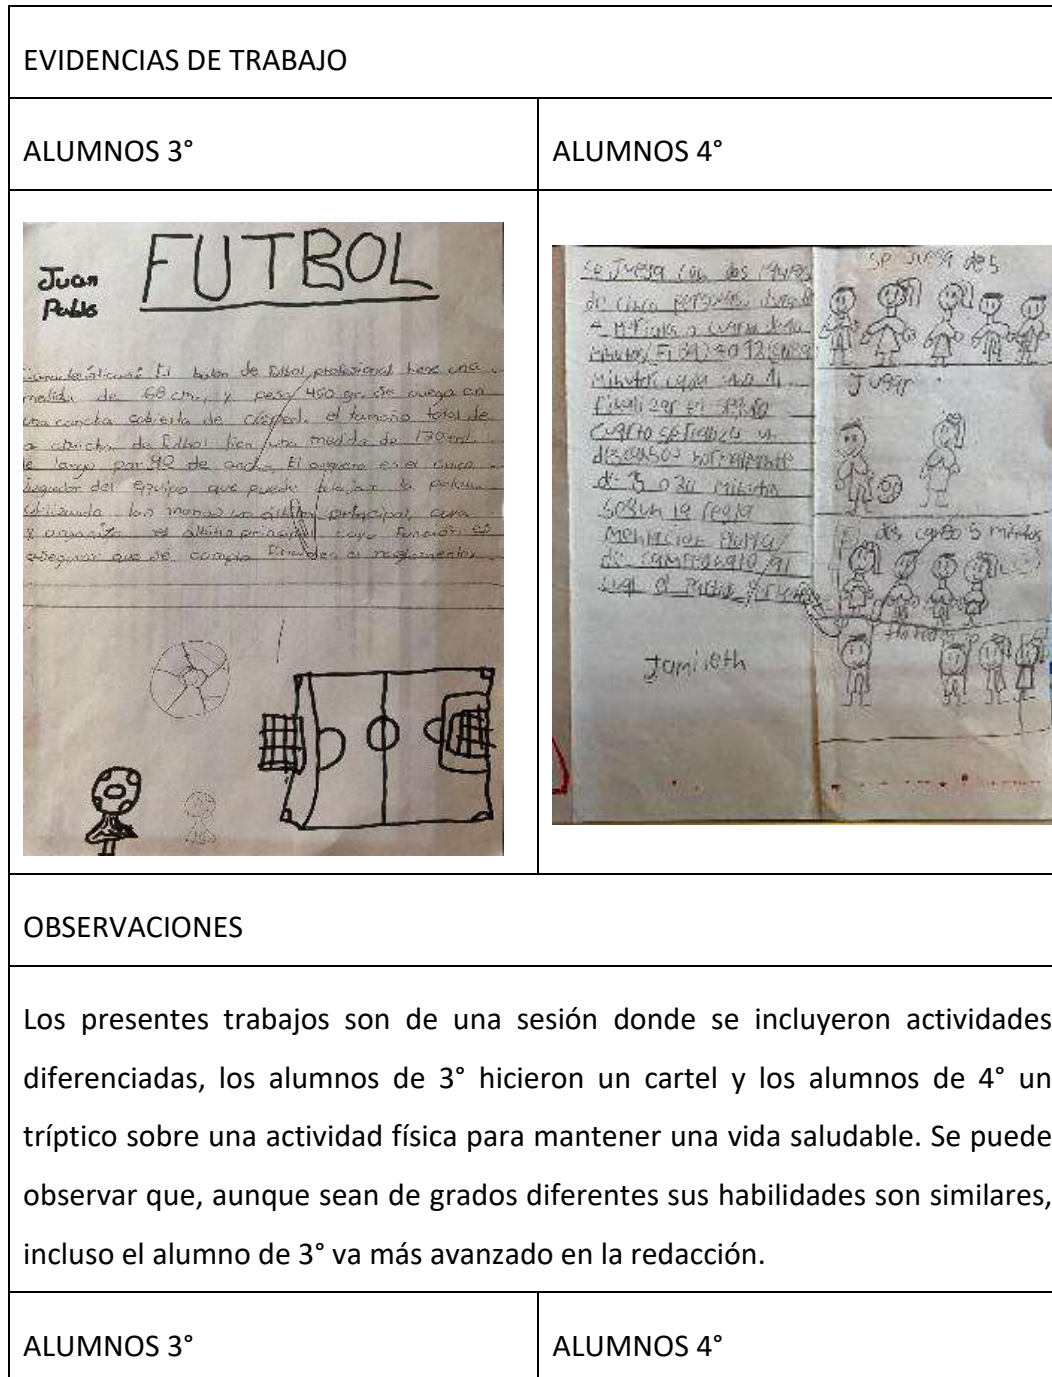 EVIDENCIAS DE TRABAJO
ALUMNOS 3°
ALUMNOS 4°
FUTBOL
Juan
Pablo
El balon de futbol profesional tiene una
medida de 68 cm, y pesa 450 gr, se juega en
una cancha cubierta de cesped. el tamaño total de
de futbol tien una medida de
largo por 90 de ancho, El es el unico
jugador del equipo que puede la
utilizando las manos un principal, cuya
organiza el principal cuya función es
asegurar que se cumpla el reglamento.
se Juega con dos
de cinco personas
4 cuartos
minutos 12
minutos cada
Finalizar el
cuarto se realiza un
descanso normalmente
de 5 o 20 minutos
segun la regla
del campeonato al
cual el Partido
Jamileth
se Juega de 5
Jugar
des can so 5 minutos
OBSERVACIONES
Los presentes trabajos son de una sesión donde se incluyeron actividades
diferenciadas, los alumnos de 3° hicieron un cartel y los alumnos de 4° un
tríptico sobre una actividad física para mantener una vida saludable. Se puede
observar que, aunque sean de grados diferentes sus habilidades son similares,
incluso el alumno de 3° va más avanzado en la redacción.
ALUMNOS 3°
ALUMNOS 4°